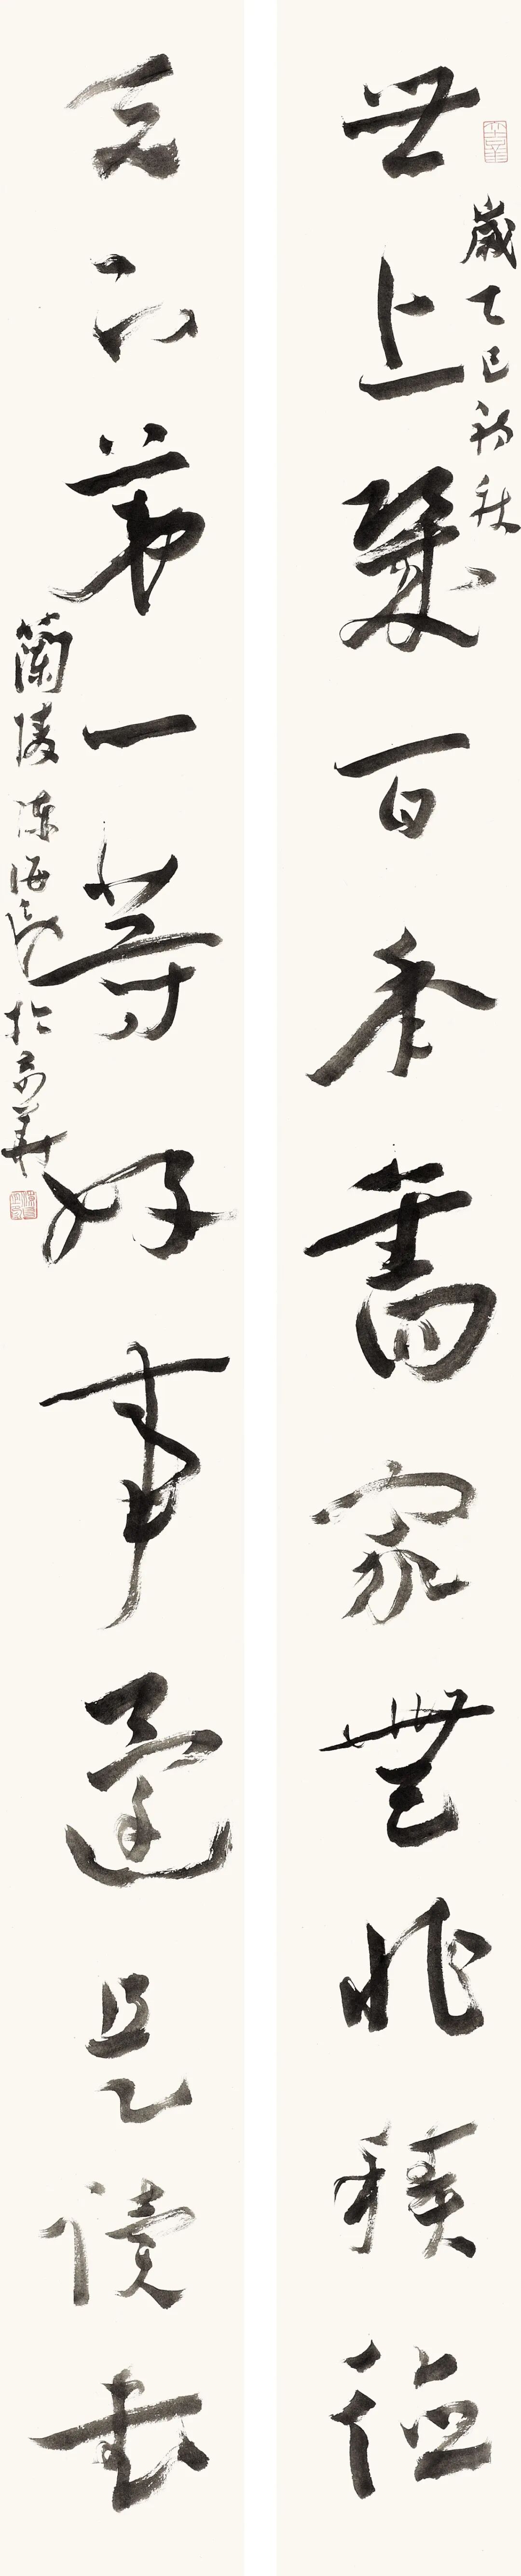 歲乙巳初秋
世上幾百年舊家無非積德
天下第一等好事還是讀書
蘭陵陳海良於京華